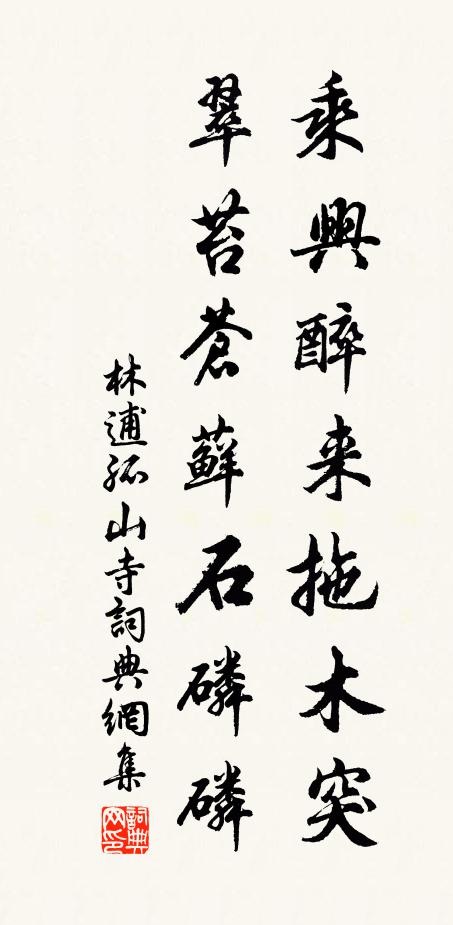 乘興醉来拖木突
翠苔蒼蘚石磷磷
林逋孤山寺詞典網集
詞典网印